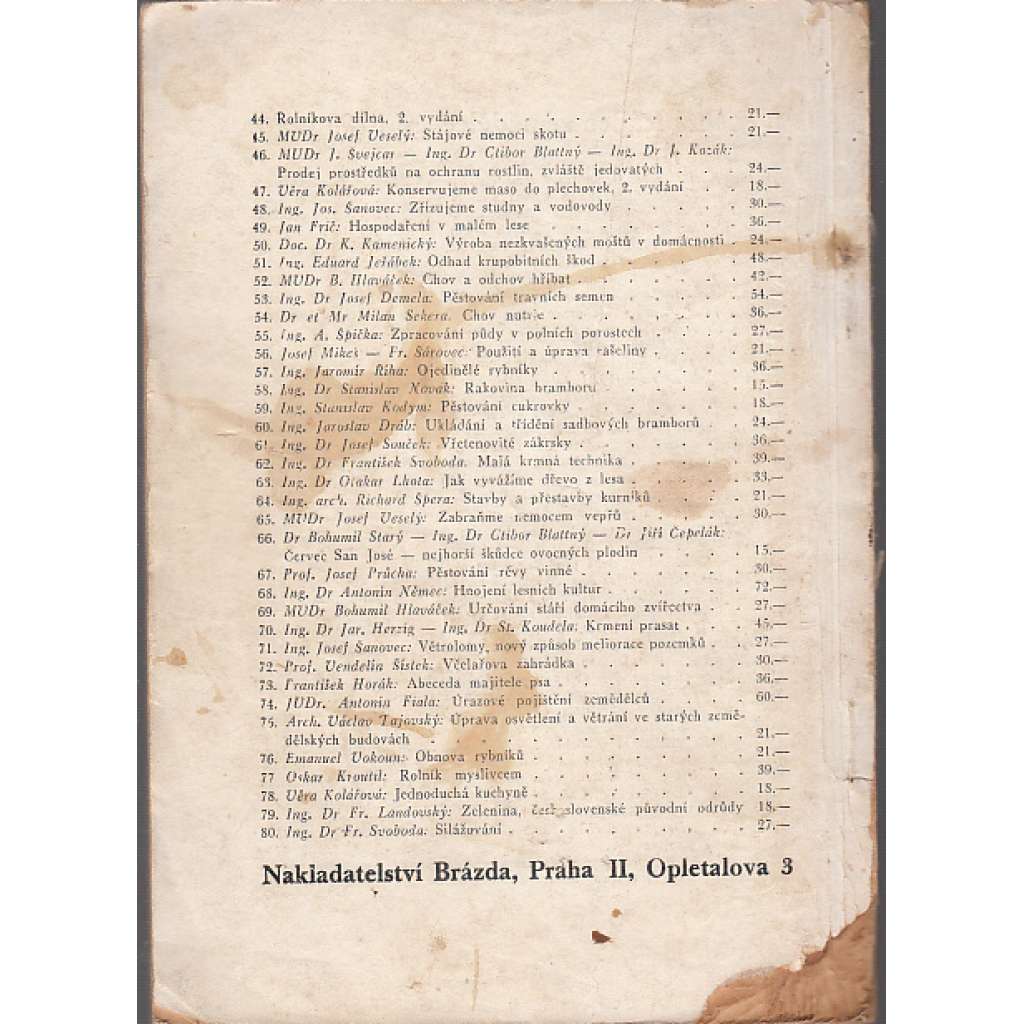 44. Rolníkova dílna, 2. vydání . . . . . . . . . . . 21.—
45. MUDr Josef Veselý: Stájové nemoci skotu . . . . . . . 21.—
46. MUDr J. Švejcar — Ing. Dr Ctibor Blattný — Ing. Dr J. Kozák:
Prodej prostředků na ochranu rostlin, zvláště jedovatých . . . 24.—
47. Věra Kolářová: Konservujeme maso do plechovek, 2. vydání . . . 18.—
48. Ing. Jos. Šanovec: Zřizujeme studny a vodovody . . . . . 30.—
49. Jan Frič: Hospodaření v malém lese . . . . . . . . 36.—
50. Doc. Dr K. Kamenický: Výroba nezkvašených moštů v domácnosti . 24.—
51. Ing. Eduard Jeřábek: Odhad krupobitních škod . . . . . . 48.—
52. MUDr B. Hlaváček: Chov a odchov hříbat . . . . . . . 42.—
53. Ing. Dr Josef Demela: Pěstování travních semen . . . . . 54.—
54. Dr et Mr Milan Sekera: Chov nutrie . . . . . . . . 36.—
55. Ing. A. Špička: Zpracování půdy v polních porostech . . . . 27.—
56. Josef Mikeš — Fr. Šárovec: Použití a úprava rašeliny . . . . 21.—
57. Ing. Jaromír Říha: Ojedinělé rybníky . . . . . . . . 36.—
58. Ing. Dr Stanislav Novák: Rakovina bramborů . . . . . . 15.—
59. Ing. Stanislav Kodym: Pěstování cukrovky . . . . . . . 18.—
60. Ing. Jaroslav Dráb: Ukládání a třídění sadbových bramborů . . 24.—
61. Ing. Dr Josef Souček: Vřetenovité zákrsky . . . . . . . 36.—
62. Ing. Dr František Svoboda. Malá krmná technika . . . . . 39.—
63. Ing. Dr Otakar Lhota: Jak vyvážíme dřevo z lesa . . . . . 33.—
64. Ing. arch. Richard Spera: Stavby a přestavby kurníků . . . . 21.—
65. MUDr Josef Veselý: Zabraňme nemocem vepřů . . . . . 30.—
66. Dr Bohumil Starý — Ing. Dr Ctibor Blattný — Dr Jiří Čepelák:
Červec San José — nejhorší škůdce ovocných plodin . . . . 15.—
67. Prof. Josef Průcha: Pěstování révy vinné . . . . . . . 30.—
68. Ing. Dr Antonín Němec: Hnojení lesních kultur . . . . . . 72.—
69. MUDr Bohumil Hlaváček: Určování stáří domácího zvířectva . . 27.—
70. Ing. Dr Jar. Herzig — Ing. Dr St. Koudela: Krmení prasat . . . 45.—
71. Ing. Josef Šanovec: Větrolomy, nový způsob meliorace pozemků . . 27.—
72. Prof. Vendelín Šístek: Včelařova zahrádka . . . . . . . 30.—
73. František Horák: Abeceda majitele psa . . . . . . . . 36.—
74. JUDr. Antonín Fiala: Úrazové pojištění zemědělců . . . . 60.—
75. Arch. Václav Tajovský: Úprava osvětlení a větrání ve starých země-
dělských budovách . . . . . . . . . . . . . 21.—
76. Emanuel Vokoun: Obnova rybníků . . . . . . . . . 21.—
77 Oskar Kroutil: Rolník myslivcem . . . . . . . . . 39.—
78. Věra Kolářová: Jednoduchá kuchyně . . . . . . . . . 18.—
79. Ing. Dr Fr. Landovský: Zelenina, československé původní odrůdy 18.—
80. Ing. Dr Fr. Svoboda: Silážování . . . . . . . . . . 27.—
Nakladatelství Brázda, Praha II, Opletalova 3